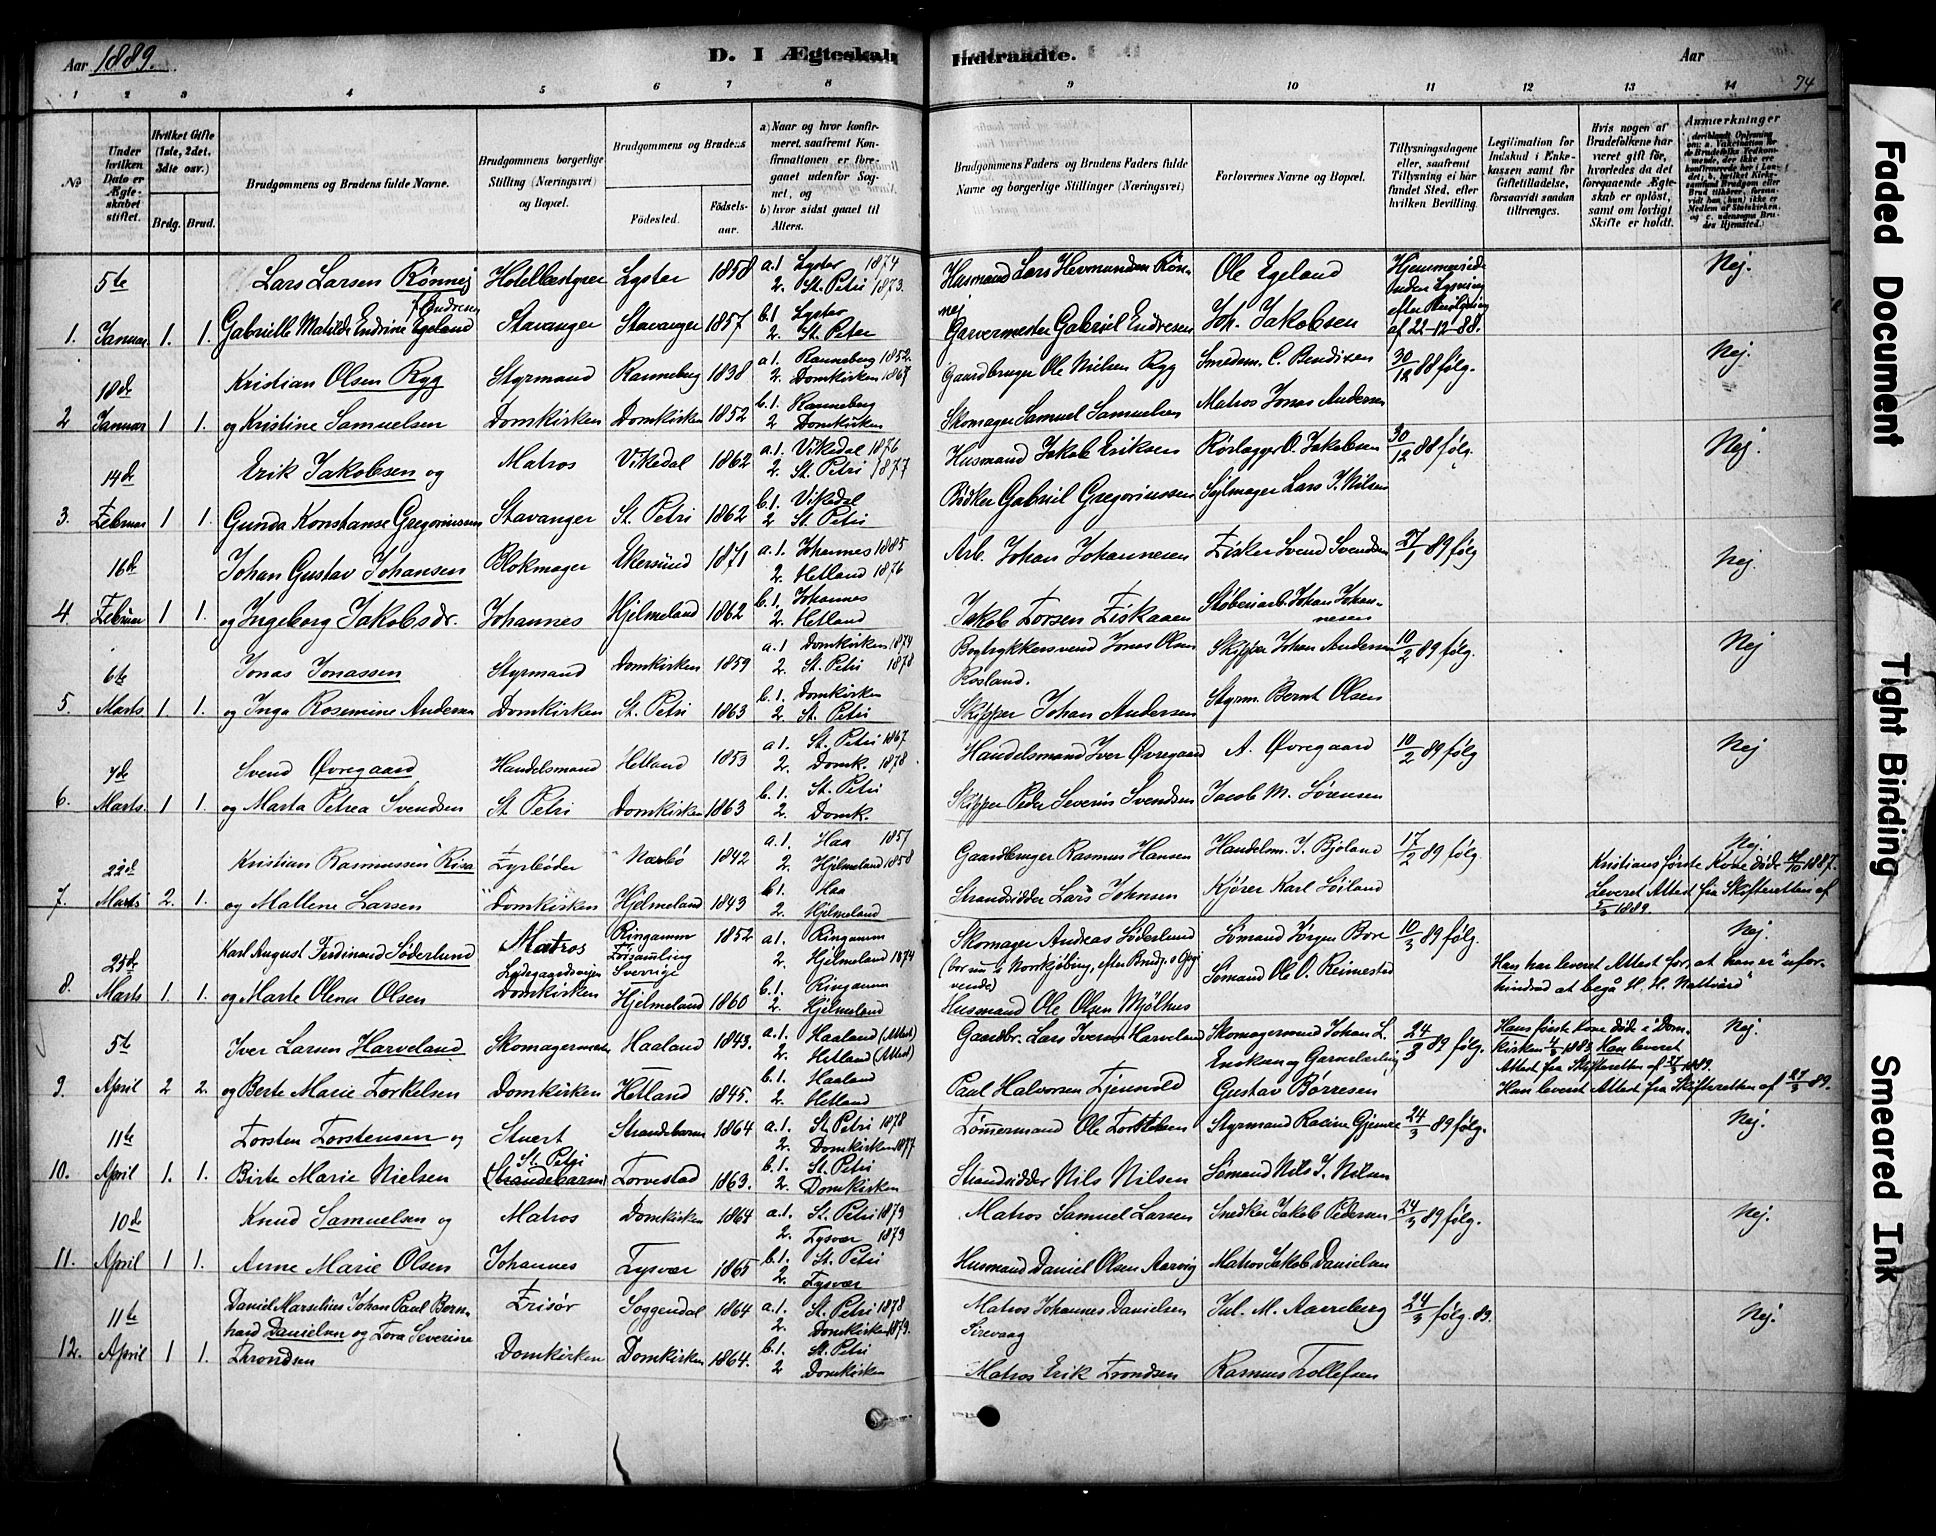 Aar 1889.
D. I Ægteskab Indtraadte.
Aar
74
1 2 3 4 5 6 7 8 9 10 11 12 13 14
No
Under hvilken Dato er Ægteskabet stiftet.
Hvilket Gifte (1ste, 2det, 3die osv.)
Brdg. Brud.
Brudgommens og Brudens fulde Navne.
Brudgommens borgerlige Stilling (Næringsvei) og Bopæl.
Brudgommens og Brudens
Fødested.
Fødselsaar.
a) Naar og hvor konfirmeret, saafremt Konfirmationen er foregaaet udenfor Sognet, og
b) hvor sidst gaaet til Alters.
Brudgommens Faders og Brudens Faders fulde Navne og borgerlige Stillinger (Næringsvei)
Forlovernes Navne og Bopæl.
Tillysningsdagene eller, saafremt Tillysning ei har fundet Sted, efter hvilken Bevilling.
Legitimation for Indskud i Enkekassen samt for Giftetilladelse, forsaavidt saadan tiltrænges.
Hvis nogen af Brudefolkene har været gift før, hvorledes da det foregaaende Ægteskab er opløst, samt om lovligt Skifte er holdt.
Anmærkninger
5te Lars Larsen Rönnej Hotelbestyrer Lyster 1858 a.1 Lyster 1874 2. St. Petri 1873. Husmand Lars Hermundsen Rönnej Ole Egeland Hjemmeviede uden Lysning efter Bevilgning af 22-12-88. Nej.
1. Januar 1. 1. Gabrielle Matilde Endrine Egeland f. Endresen Stavanger Stavanger 1857 b.1 Lyster 2. St. Peter Garvermester Gabriel Endresen Joh. Jakobsen
18de Kristian Olsen Ryg Styrmand Ranneberg 1838 a.1. Ranneberg 1852. 2. Domkirken 1867 Gaardbruger Ole Nilsen Ryg Smedem. C. Bendixen 30/12 88 følg. Nej.
2 Januar 1 1. og Kristine Samuelsen Domkirken Domkirken 1852 b.1. Ranneberg 2 Domkirken Skomager Samuel Samuelsen Matros Jonas Andersen
14de Erik Jakobsen og Matros Vikedal 1862 a.1. Vikedal 1876 2. St. Petri 1877 Husmand Jakob Eriksen Rörlægger O. Jakobsen 30/12 88 følg. Nej.
3. Februar 1 1. Gunda Konstanse Gregoriussen Stavanger St. Petri 1862 b.1. Vikedal 2 St. Petri Bödker Gabriel Gregoriussen Sejlmager Lars J. Nilsen
16de Johan Gustav Johansen Blokmager Ekersund 1871 a.1. Johannes 1885 2. Hetland 1876 Arb. Johan Johannesen Fisker Svend Svendsen 27/1 89 følg Nej.
4. Februar 1 1. og Ingeborg Jakobsdr. Johannes Hjelmeland 1862 b.1. Johannes 2. Hetland Jakob Torsen Fiskaaen Støberiarb. Johan Johannesen
6te Jonas Jonassen Styrmand Domkirken 1859 a.1 Domkirken 1874 2. St. Petri 1878 Bogtrykkersvend Jonas Olsen Rosland. Skipper Johan Andersen 10/2 89 følg. Nej
5. Marts 1 1. og Inga Rosemine Andersen Domkirken St. Petri 1863 b.1. Domkirken 2. St. Petri Skipper Johan Andersen Styrm. Bernt Olsen
7de Svend Øvregaard Handelsmand Hetland 1853 a 1. St. Petri 1867 2. Domk. 1878 Handelsmand Iver Øvregaard A. Øvregaard 10/2 89 følg Nej
6. Marts. 1 1. og Marta Petrea Svendsen St Petri Domkirken 1863 b.1. St. Petri 2. Domk. Skipper Peder Severin Svendsen Jacob M. Sörensen
22de Kristian Rasmussen Risa Fyrböder Nærbö 1842 a.1. Haa 1857 2. Hjelmeland 1858 Gaardbruger Rasmus Hansen Handelsm. J. Bjoland 17/2 89 følg Nej. Kristians første Kone döde 1887.
7. Marts 2. 1. og Mallene Larsen Domkirken Hjelmeland 1843 b.1. Haa 2. Hjelmeland Strandsidder Lars Johnsen Kjører Karl Soiland Leveret Attest fra Skifteretten af 5/3 1889.
25de Karl August Ferdinand Söderlund Matros Ringamm Församling Sverrige 1852 a.1. Ringamm 2. Hjelmeland 1874 Skomager Andreas Söderlund Sömand Jörgen Bore 10/3 89 følg. Nej.
8. Marts 1. 1. og Marte Olena Olsen Domkirken Hjelmeland 1860 b.1. Ringamm 2. Hjelmeland Husmand Ole Olsen Mjölhus Sömand Ole O. Reimestad Han har leveret Attest for, at han er "uforhindrad at begå H. H. Nattvard"
5te Iver Larsen Harveland Skomagermester Haaland 1843. a.1. Haaland (Attest) 2. Hetland (Attest) Gaardbr. Lars Iversen Harveland Skomagersvend Johan L. Eriksen og Garverlærling 24/3 89 følg. Hans første Kone døde i Domkirken 4/3 1883. Han leveret Attest fra Skifteretten af 1889. Nej.
9. April 2 2. og Berte Marie Torkelsen Domkirken Hetland 1845. b.1. Haaland 2. Hetland Paul Halvorsen Gustav Børresen Hun leveret Attest fra Skifteretten af 27/3 89.
11te Torsten Torstensen og Stuert Strandebarm 1864 a.1. St. Petri 1878 2. Domkirken 1877 Tömmermand Ole Styrmand 24/3 89 følg. Nej.
10. April 1. 1. Birte Marie Nielsen St. Petri (Strandebarm) Torvestad 1863. b.1. St. Petri 2. Domkirken Strandsidder Nils Nilsen Sömand Nils J. Nilsen
10de Knud Samuelsen og Matros Domkirken 1864 a.1. St. Petri 1879 2. Tysvær 1879 Matros Samuel Larsen Snedker Jakob Pedersen 24/3 89 følg. Nej.
11. April 1 1. Anne Marie Olsen Johannes Tysvær 1865 b.1. St. Petri 2 Tysvær Husmand Daniel Olsen Aarvig Matros Jakob Danielsen
11te Daniel Marselius Johan Paul Bernhard Danielsen og Tora Severine Frisör Soggendal 1864 a.1. St. Petri 1878 2. Domkirken 1879. Matros Johannes Danielsen Sirevaag Jul. M. Aarreberg 24/3 følg. 89. Nej.
12. April 1 1. Throndsen Domkirken Domkirken 1864. b.1. St. Petri 2 Domkirken Matros Erik Trondsen Rasmus Tollefsen
Faded Document
Tight Binding
Smeared Ink